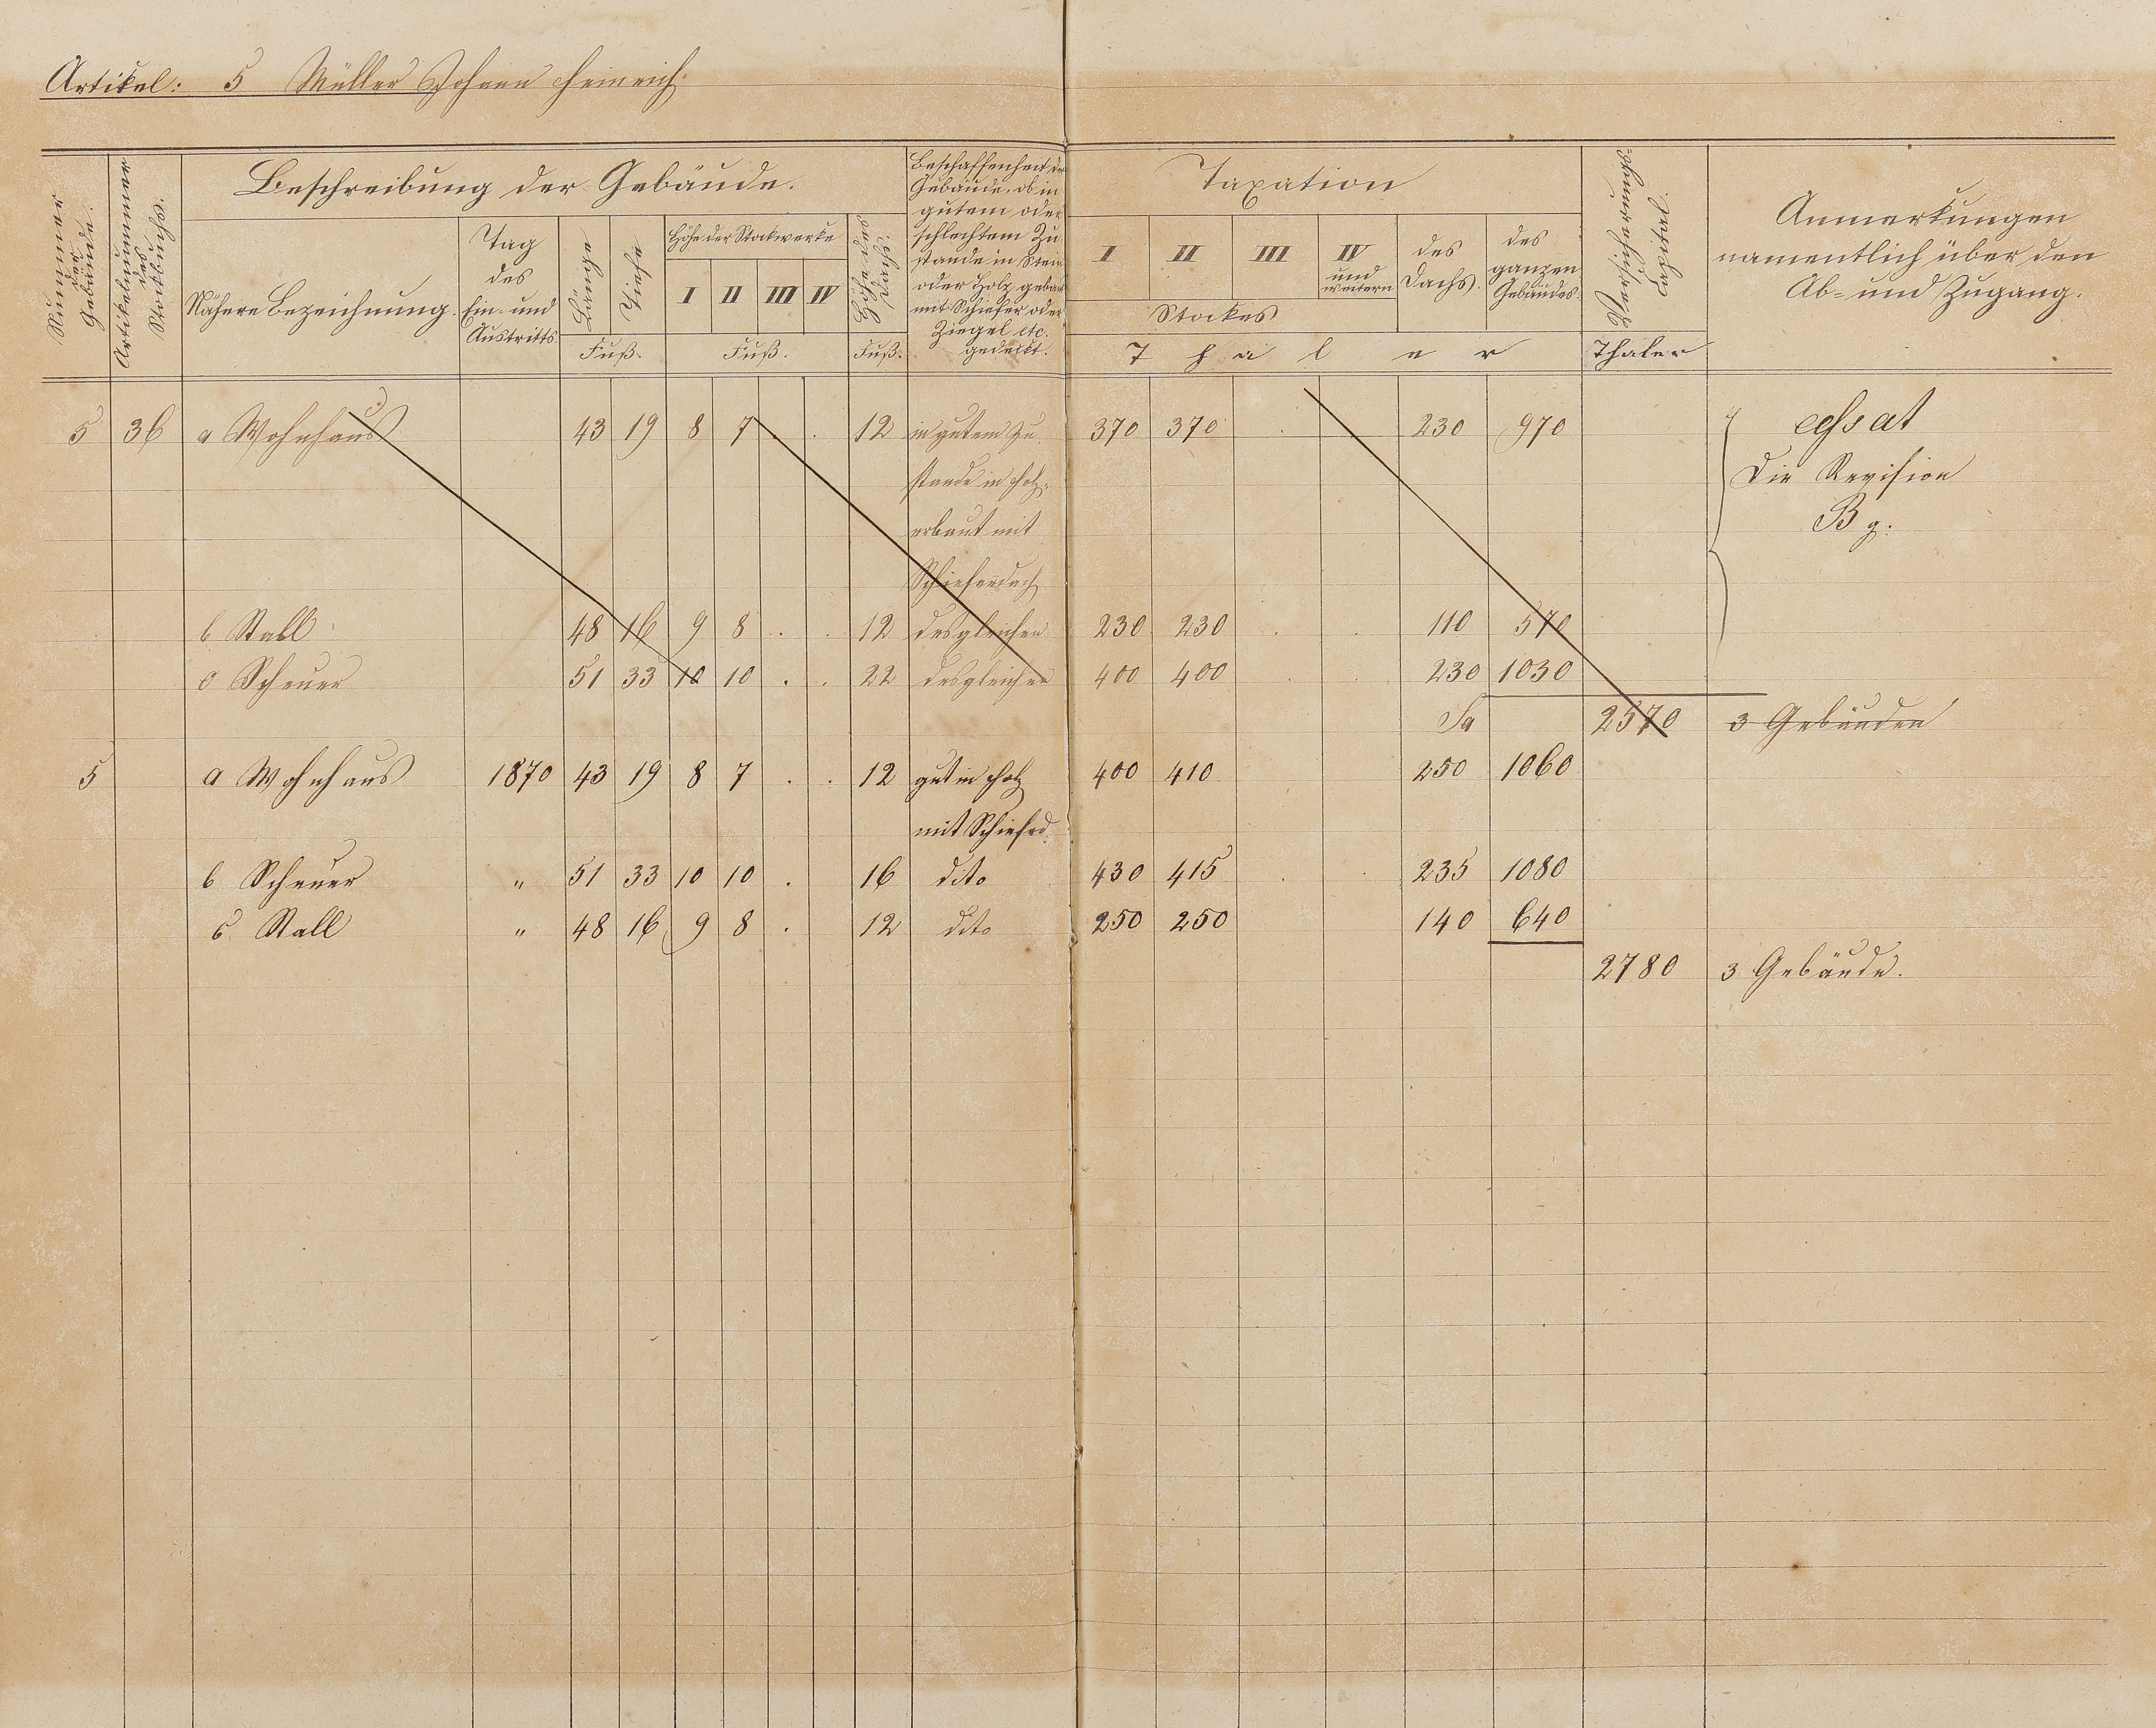 Artikel: 5 Müller Johann Heinrich
Nummer der Gebäude.
Artikelnummer des Stockbuchs.
Beschreibung der Gebäude.
Nähere Bezeichnung.
Tag des Ein- und Austritts.
Länge
Tiefe
Fuß.
Höhe der Stockwerke
I II III IV
Fuß.
Höhe des Dachs.
Fuß.
Beschaffenheit der
Gebäude, ob in
gutem oder
schlechtem Zu-
stande in Stein
oder Holz gebaut
mit Schiefer oder
Ziegel etc.
gedeckt.
Taxation
I II III IV und weitern
Stockes
des Dachs.
des ganzen Gebäudes.
Thaler
Versicherungs-
Thaler
Anmerkungen
namentlich über den
Ab- und Zugang.
5 36 a Wohnhaus 43 19 8 7 . . 12 in gutem Zu- 370 370 . 230 970 cessat
stande in Holz Die Revision
erbaut mit Bg.
Schieferdach
b Stall 48 16 9 8 . . 12 desgleichen 230 230 . . 110 570
c Scheuer 51 33 10 10 . . 22 desgleichen 400 400 . . 230 1030
Sa 2570 3 Gebäuden
5 a Wohnhaus 1870 43 19 8 7 . . 12 gut in Holz 400 410 250 1060
mit Schiefrd.
b Scheuer " 51 33 10 10 . 16 dito 430 415 . . 235 1080
c Stall " 48 16 9 8 . 12 dito 250 250 140 640
2780 3 Gebäude.